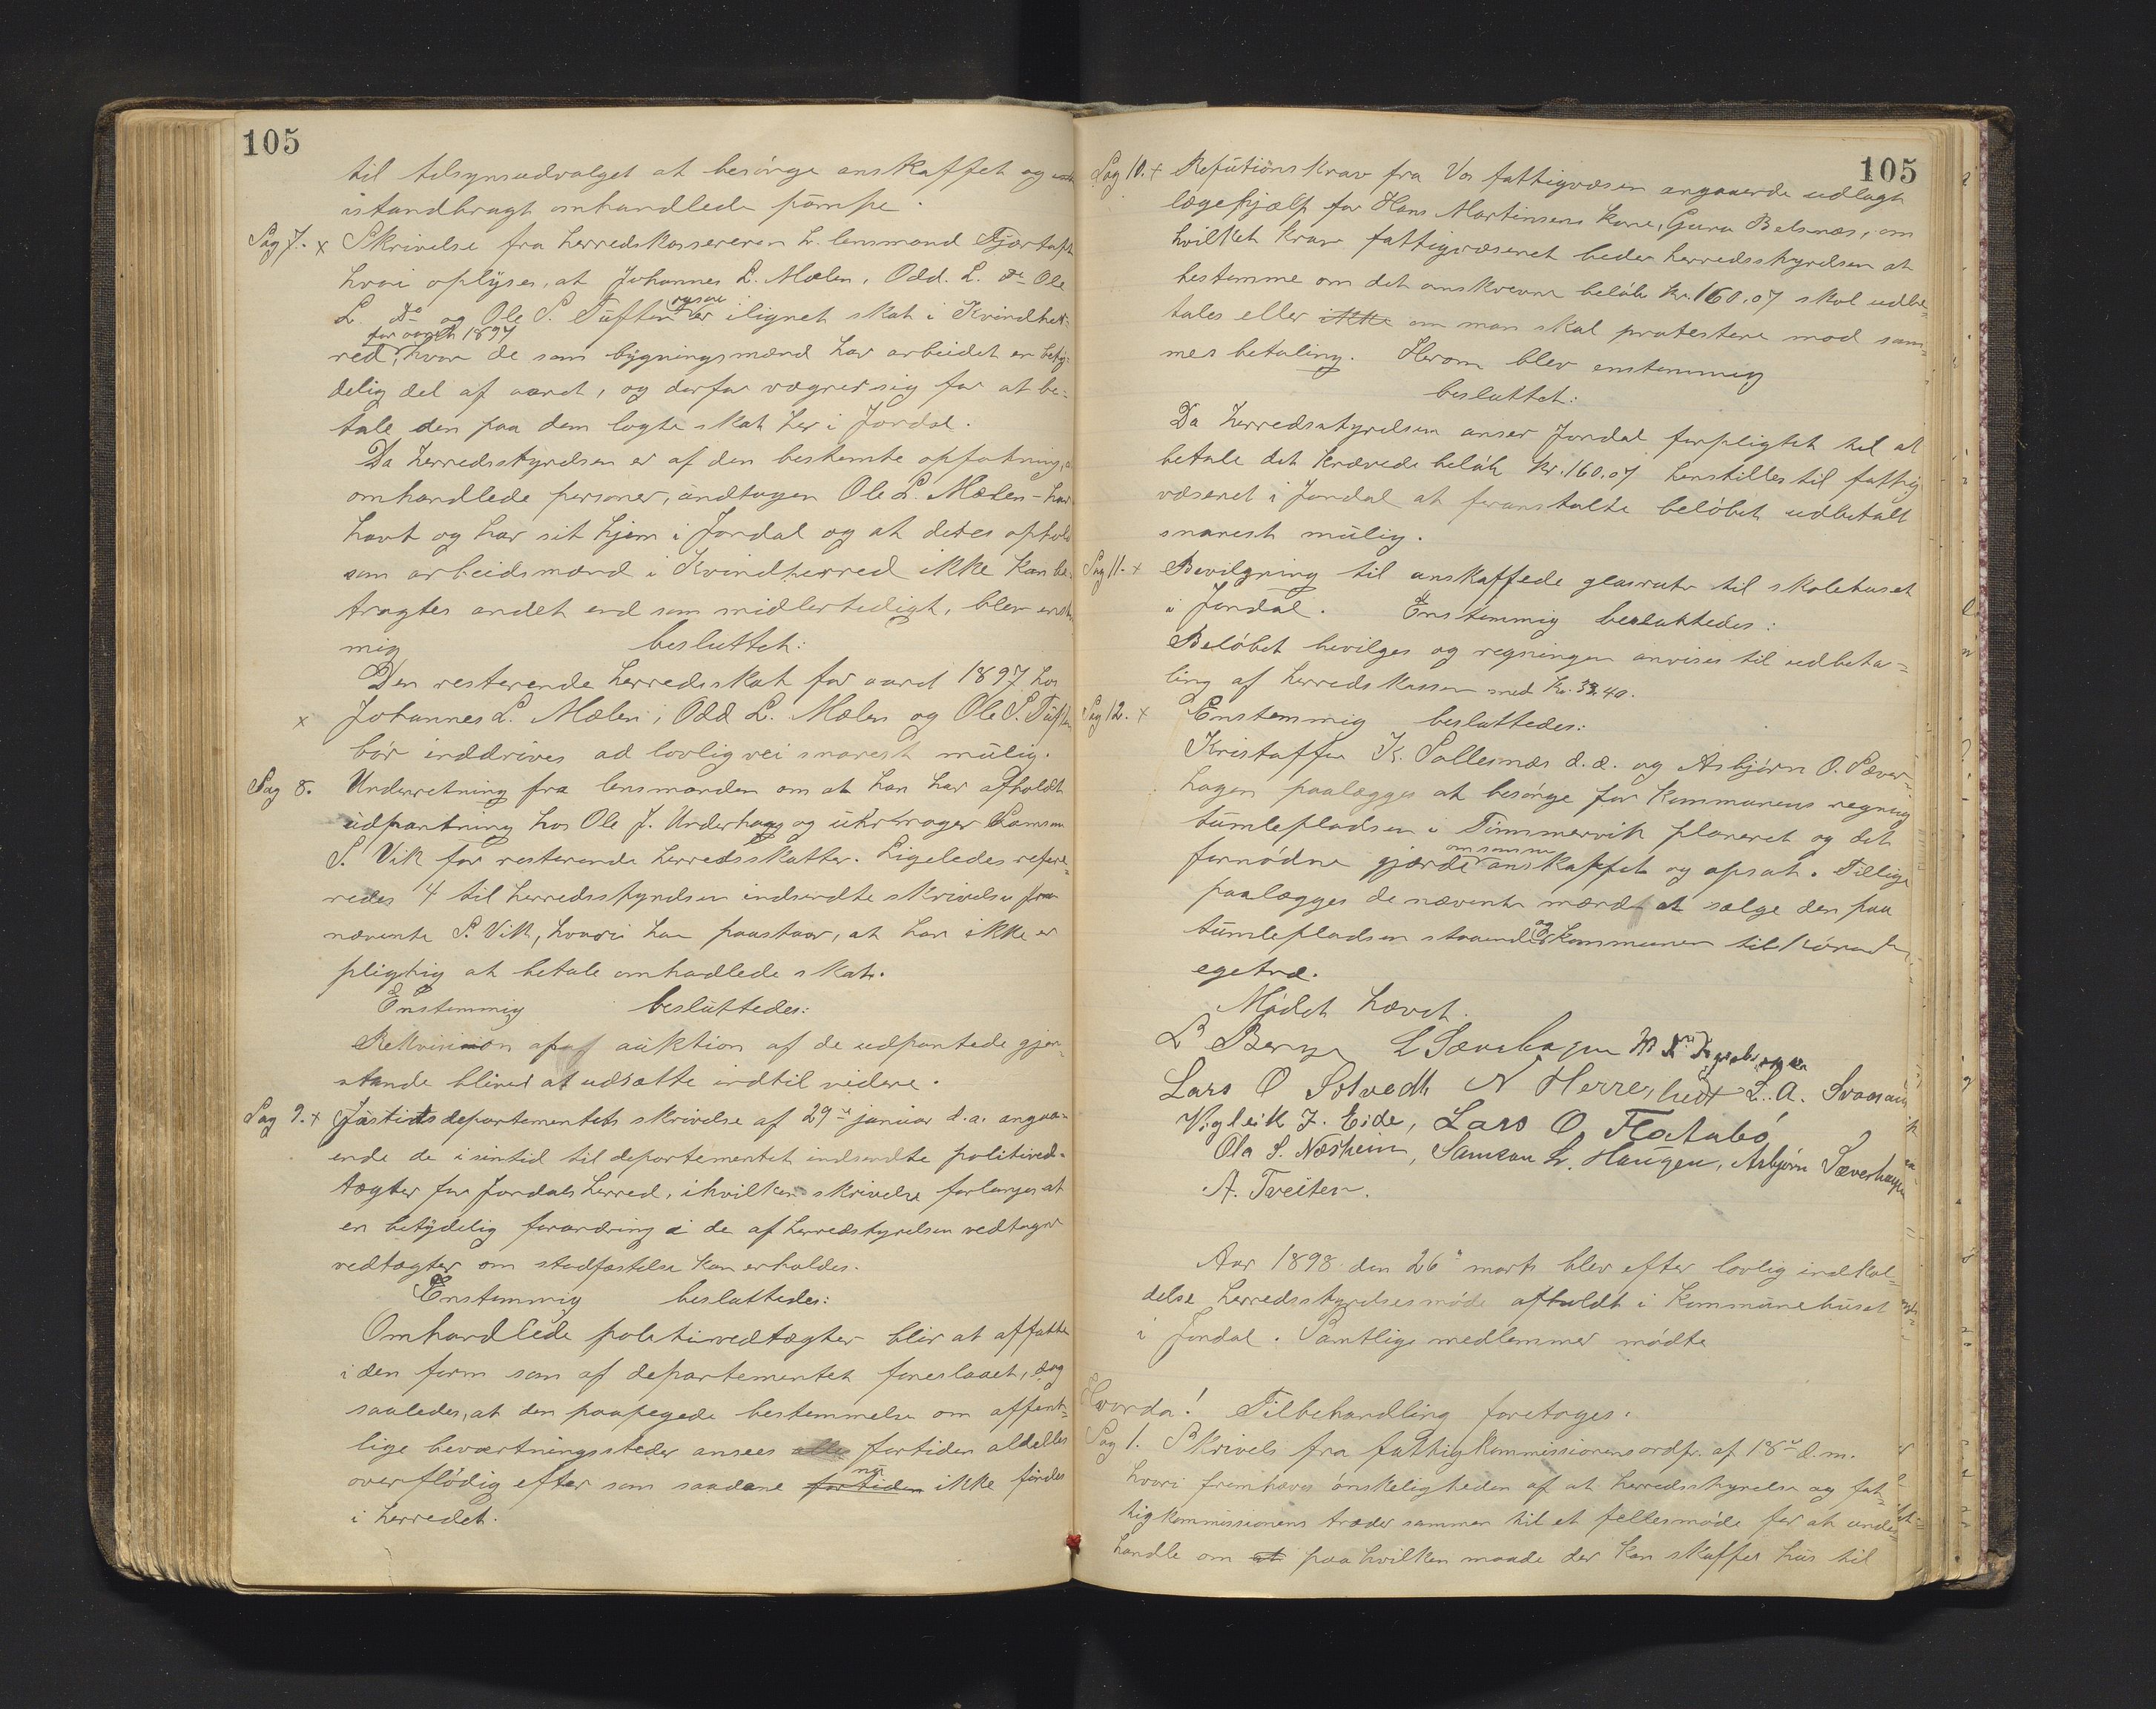 105
til tilsynsudvalget at besørge anskaffet og
istandbragt omhandlede pumpe.
Sag 7. x Skrivelse fra herredskassereren h. lensmand Fjærtoft
hvori oplyses, at Johannes L. Mælen, Odd. L. do Ole
L. do og Ole S. Tuften ogsaa er ilignet skat i Kvindher-
red, for aaret 1897 hvor de som bygningsmænd har arbeidet en bety-
delig del af aaret, og derfor vægrer sig for at be-
tale den paa dem lagte skat her i Jondal.
Da herredsstyrelsen er af den bestemte opfatning, at
omhandlede personer, undtagen Ole L. Mælen - har
havt og har sit hjem i Jondal og at deres ophold
som arbeidsmænd i Kvindherred ikke kan be-
tragtes andet end som midlertedigt, blev enstem
mig besluttet:
Den resterende herredsskat for aaret 1897 hos
x Johannes L. Mælen, Odd L. Mælen og Ole S. Tuften
bør inddrives ad lovlig vei snarest mulig.
Sag 8. Underretning fra lensmanden om at han har afholdt
udpantning hos Ole J. Underhaug og uhrmager Samson
S. Vik for resterende herredsskatter. Ligeledes refere-
redes 4 til herredsstyrelsen indsendte skrivelser fra
nævnte S. Vik, hvori han paastaar, at han ikke er
pligtig at betale omhadlede skat.
Enstemmig besluttedes:
Rekvisision af auktion af de udpantede gjen-
stande bliver at udsætte indtil videre.
Sag 9. x Justitsdepartementets skrivelse af 29de januar d.a. angaa-
ende de i sintid til departementet indsendte politived-
tægter for Jondals herred, i hvilken skrivelse forlanges at
en betydelig forandring i de af herredsstyrelsen vedtagne
vedtægter om stadfæstelse kan erholdes.
Enstemmig besluttedes:
Omhandlede politivedtægter blir at affatte
i den form som af departementet foreslaaet, dog
saaledes, at den paapegede bestemmelse om offent-
lige beværtningssteder ansees fortiden aldelles
overflødig efter som saadane fortiden nu ikke findes
i herredet.
105
Sag 10. x Refutionskrav fra Vos fattigvæsen angaaende udlagt
lægehjælp for Hans Martinsens kone, Guru Belsnæs, om
hvilket krav fattigvæsenet beder herredsstyrelsen at
bestemme om det anskrevne beløb kr. 160.07 skal udbe-
tales eller ikke om man skal protestere mod sam-
mes betaling. Herom blev enstemmig
besluttet:
Da herredsstyrelsen anser Jondal forpligtet til at
betale det krævede beløb kr. 160.07 henstilles til fattig
væsenet i Jondal at foranstalte beløbet udbetalt
snarest mulig.
Sag 11. x Bevilgning til anskaffede glasruter til skolehuset
i Jondal. Enstemmig besluttedes:
Beløbet bevilges og regningen anvises til udbeta-
ling af herredskassen med kr. 39.40.
Sag 12. x Enstemmig besluttedes:
Kristaffer K. Sollesnæs d.æ. og Asbjørn O. Sæver-
hagen paalægges at besørge for kommunens regning
tumlepladsen i Timmervik planeret og det
fornødne gjærde om samme anskaffet og opsat. Tillige
paalægges de nævnte mænd at sælge den paa
tumlepladsen staaende og kommunen tilhørende
egetræ.
Mødet hævet.
L Berge L Sæverhagen
Lars O Solvedt N Herrestvedt L. A. Svaasand
Vigleik J. Eide, Lars O Flatabø
Ola S. Næsheim, Samson L. Haugen, Asbjørn Sæverhagen
A. Tveiten.
Aar 1898 den 26de marts blev efter lovlig indkal-
delse herredsstyrelsesmøde afholdt i kommunehuset
i Jondal. Samtlige medlemmer mødte
Hvorda! Tilbehandling foretoges:
Sag 1. Skrivels fra fattigkommissionens ordf. af 18de d.m.
hvori fremhæves ønskeligheden af at herredsstyrelse og fat-
tigkommissionens træder sammen til et fellesmøde for at under-
handle om at paa hvilken maade der kan skaffes hus til